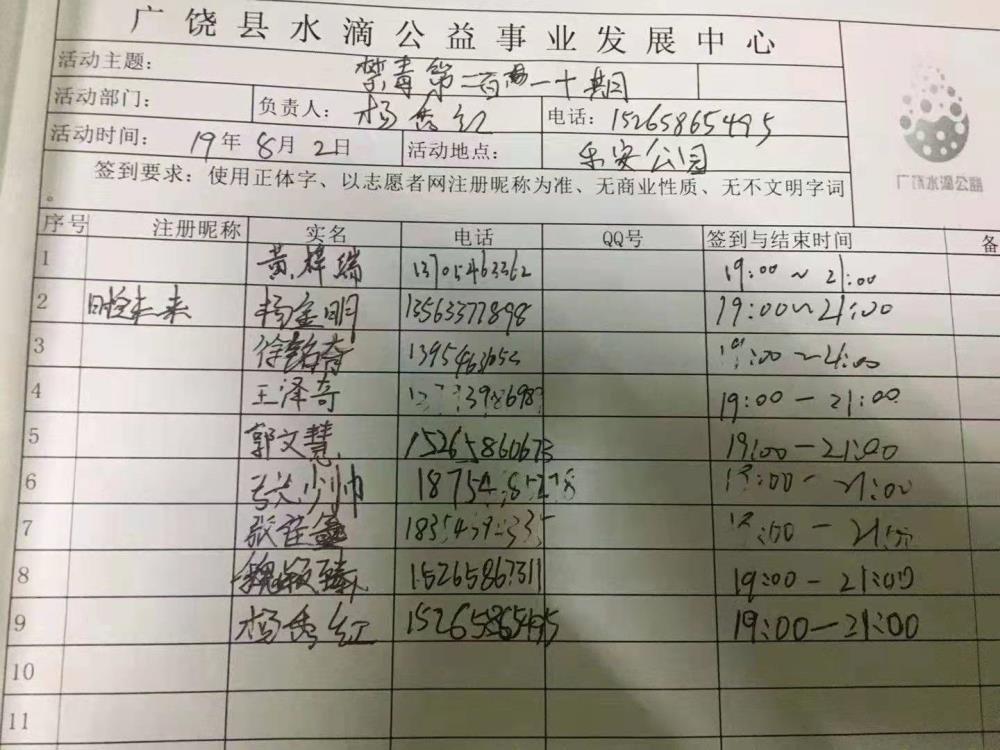 广饶县水滴公益事业发展中心
活动主题： 禁毒第二百 一十期
活动部门： 负责人： 杨秀红 电话：15265865495
活动时间： 19年8月2日 活动地点： 乐安公园
广饶水滴公益
签到要求：使用正体字、以志愿者网注册昵称为准、无商业性质、无不文明字词
。
序号 注册昵称 实名 电话 QQ号 签到与结束时间 备
1 黄梓瑞 13705463362 19:00～21:00
2 未来 杨金明 13563377898 19:00～21:00
3 徐铭奇 :00～21:00
4 王泽奇 19:00－21:00
5 郭文慧 15265860673 19:00－21:00
6 少帅 :00－21:00
7 张佳鑫 :00－
8 魏颖臻 15265867311 19:00－21:00
9 杨秀红 15265865495 19:00－21:00
10
11